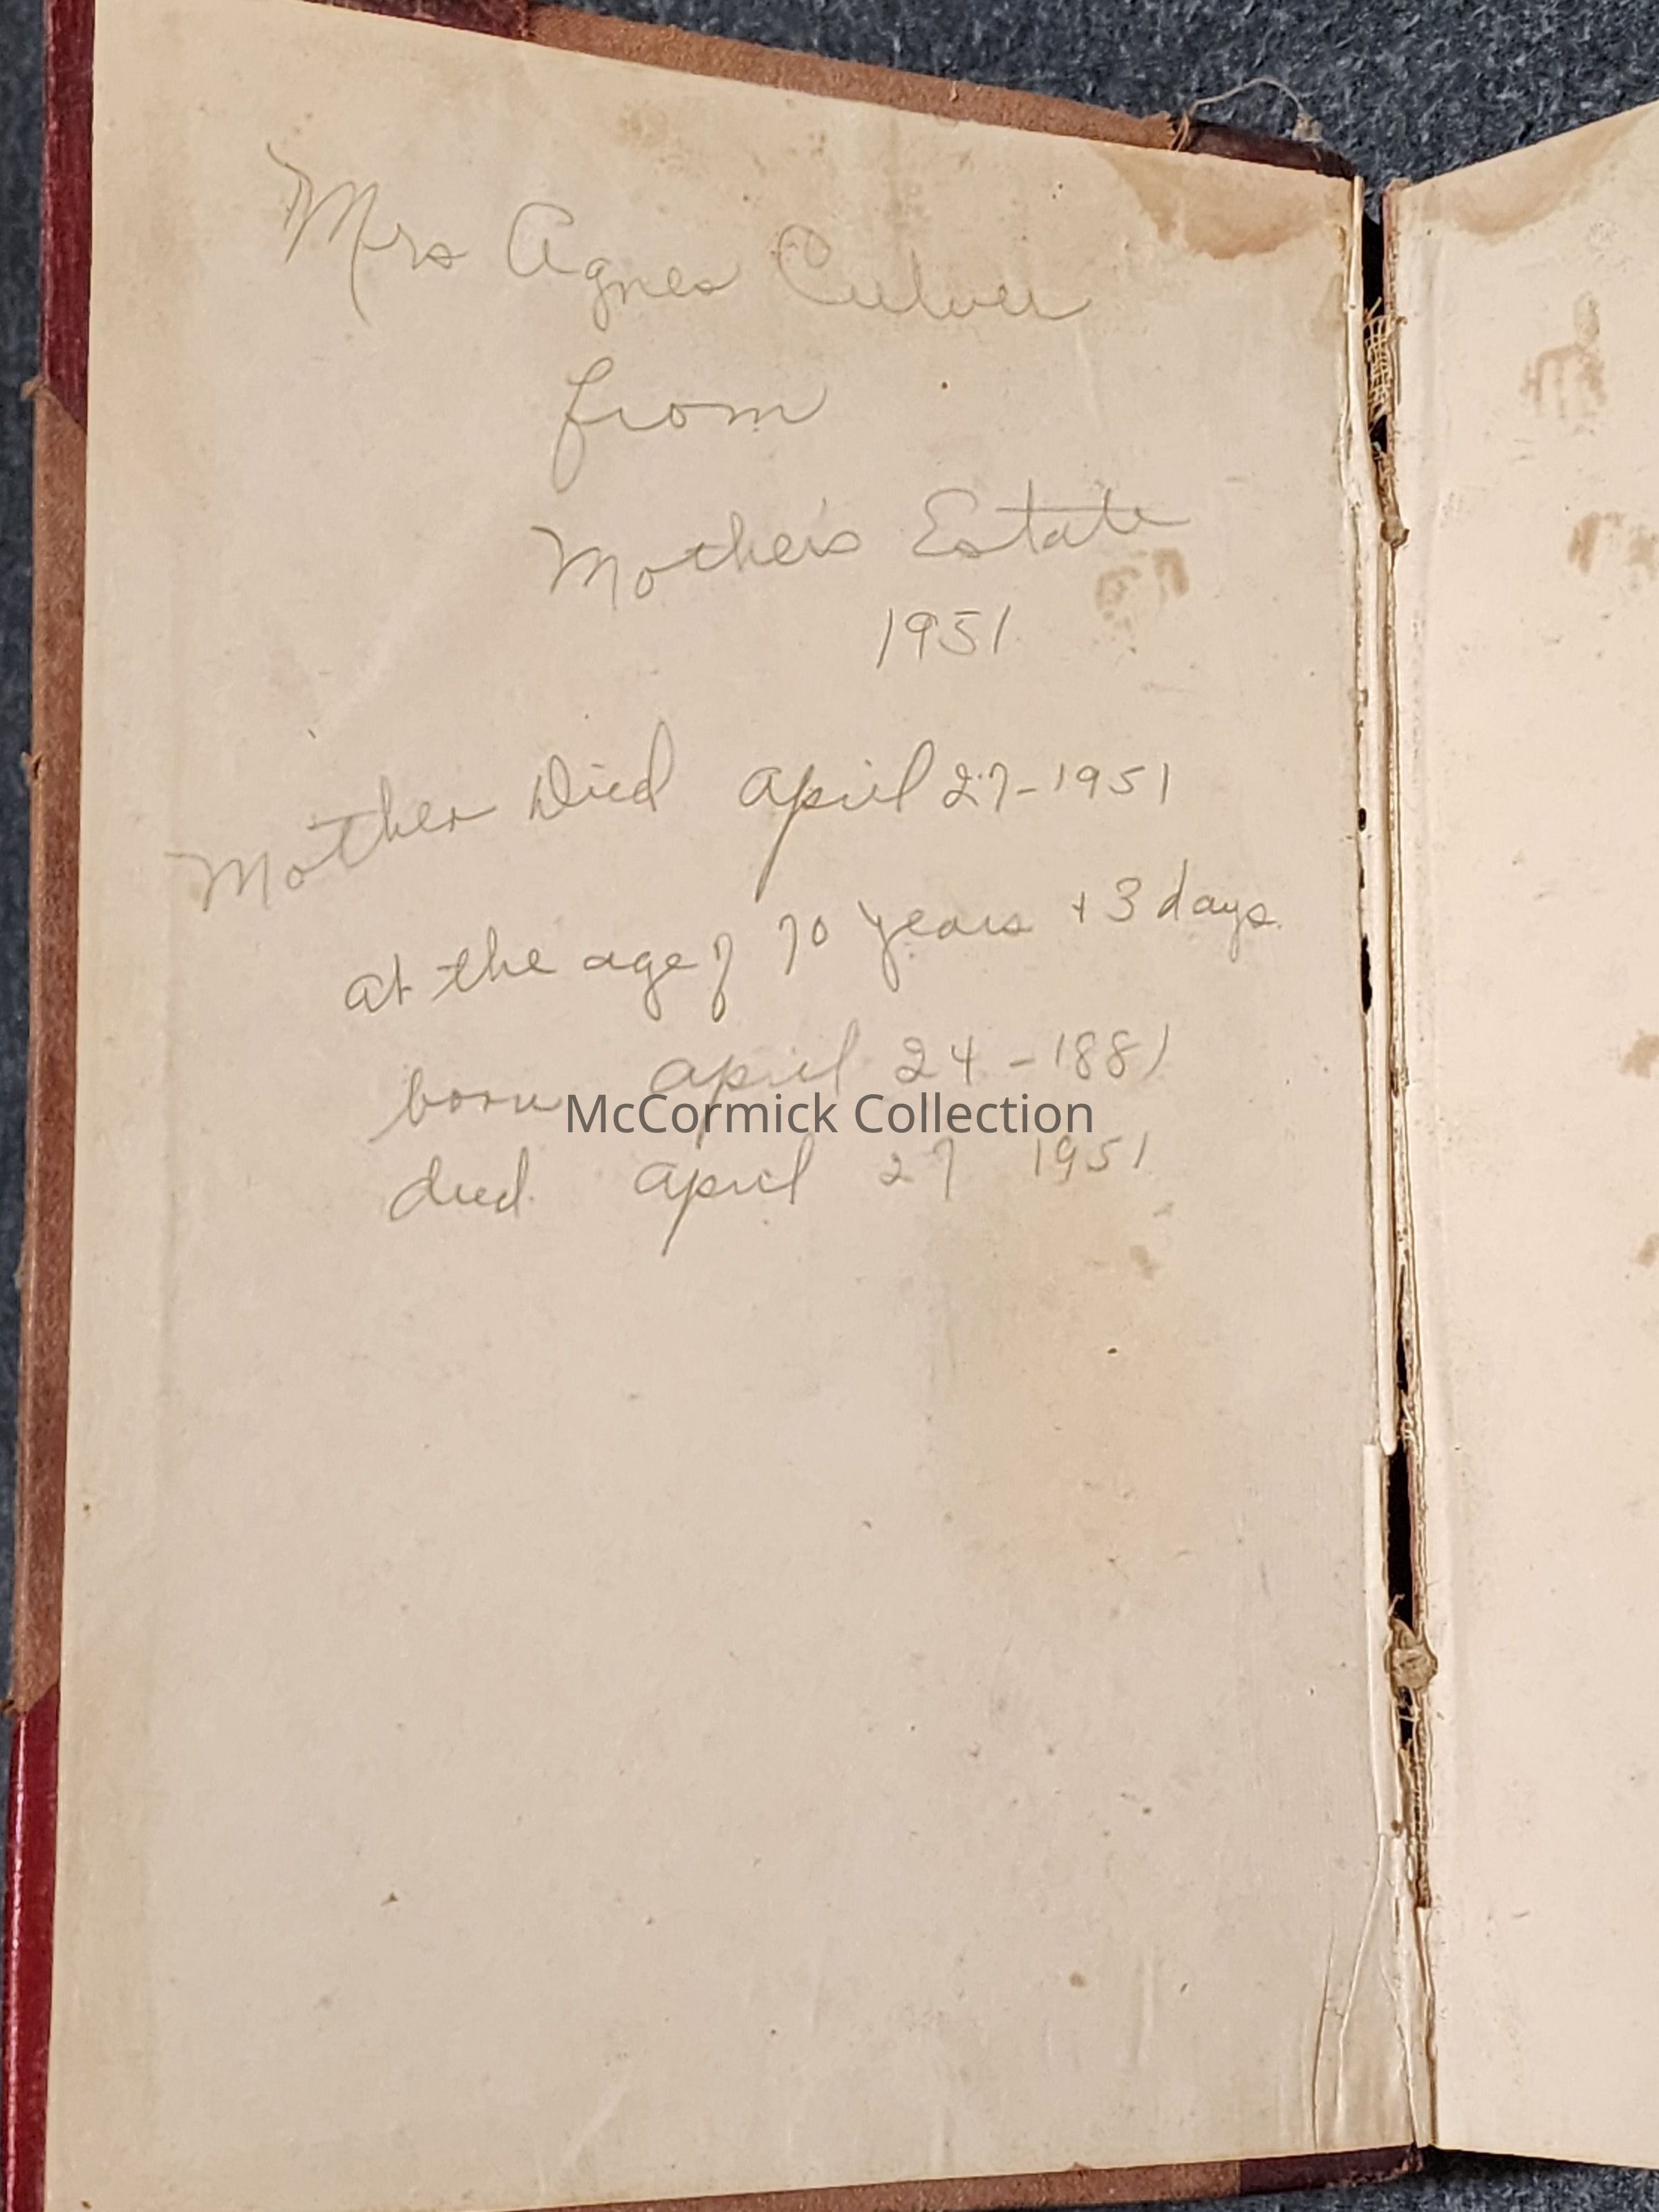 Mrs Agnes Culver
from
Mother's Estate
1951
Mother Died April 27-1951
at the age of 70 years + 3 days.
born April 24-1881
McCormick Collection
died April 27 1951